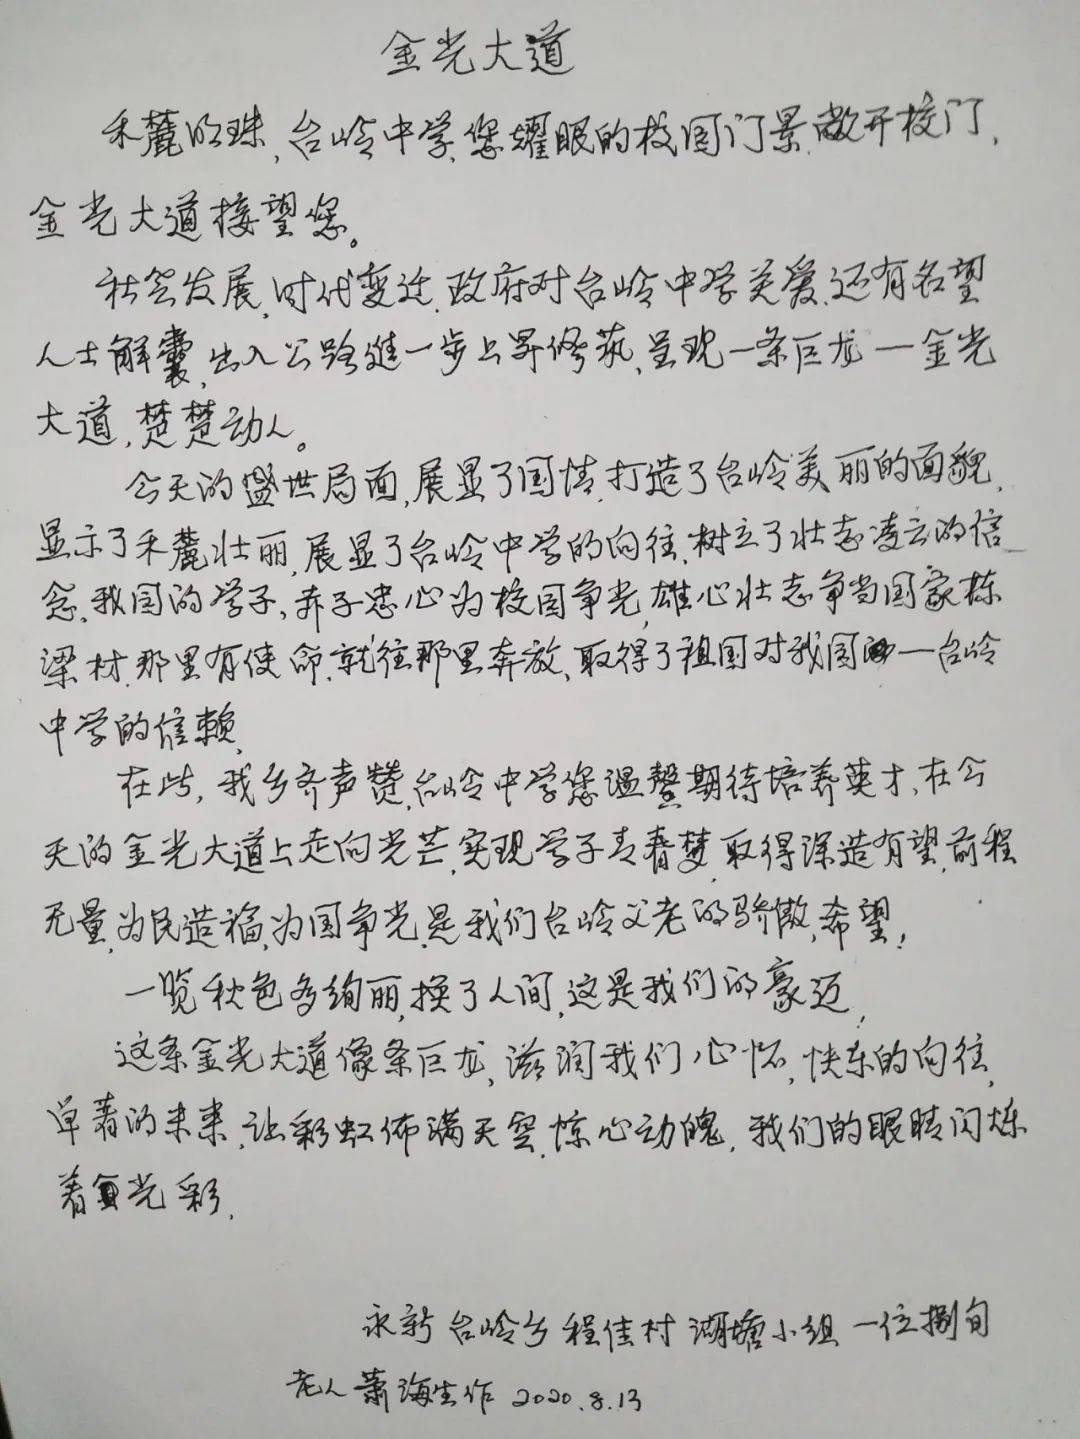 金光大道
禾麓明珠,台岭中学,您耀眼的校园门景,敞开校门,
金光大道接望您。
社会发展,时代变迁,政府对台岭中学关爱,还有名望
人士解囊,出入公路进一步上昇修筑,呈现一条巨龙—金光
大道,楚楚动人。
今天的盛世局面,展显了国情,打造了台岭美丽的面貌,
显示了禾麓壮丽,展显了台岭中学的向往,树立了壮志凌云的信
念,我园的学子,赤子忠心为校园争光,雄心壮志争当国家栋
梁材,那里有使命,就往那里奔放,取得了祖国对我园—台岭
中学的信赖,
在此,我乡齐声赞,台岭中学您温馨期待培养英才,在今
天的金光大道上走向光芒,实现学子青春梦,取得深造有望,前程
无量,为民造福,为国争光,是我们台岭父老的骄傲,希望!
一览秋色多绚丽,换了人间,这是我们的豪迈,
这条金光大道像条巨龙,滋润我们心怀,快乐的向往,
卓著的未来,让彩虹佈满天空,惊心动魄,我们的眼睛闪烁
着光彩,
永新台岭乡程佳村湖塘小组一位捌旬
老人萧海生作 2020.8.13